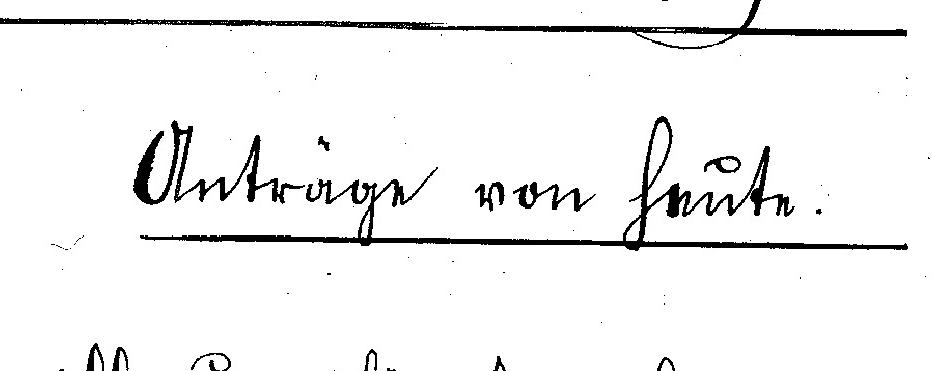 Anträge von heute.